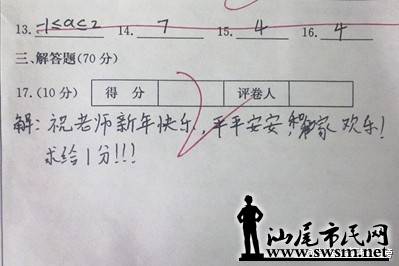 13. -1≤a≤2 14. 7 15. 4 16. 4
三、解答题(70分)
17.(10分) 得 分 评卷人
解：祝老师新年快乐，平平安安，家欢乐!
求给1分!!!
汕尾市民网
www.swsm.net